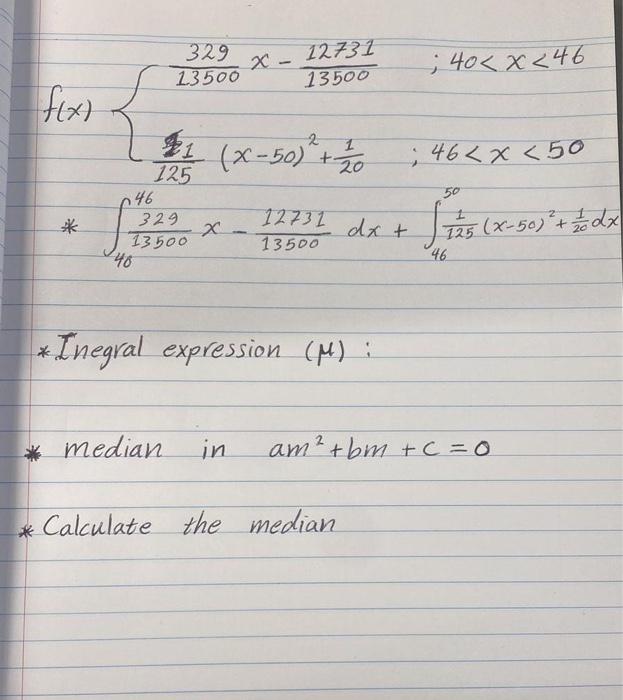 f(x) { 329/13500 x - 12731/13500 ; 40 < x < 46
1/125 (x-50)² + 1/20 ; 46 < x < 50
* ∫₄₀⁴⁶ 329/13500 x - 12731/13500 dx + ∫₄₆⁵⁰ 1/125 (x-50)² + 1/20 dx
* Inegral expression (μ) :
* median in am² + bm + c = 0
* Calculate the median